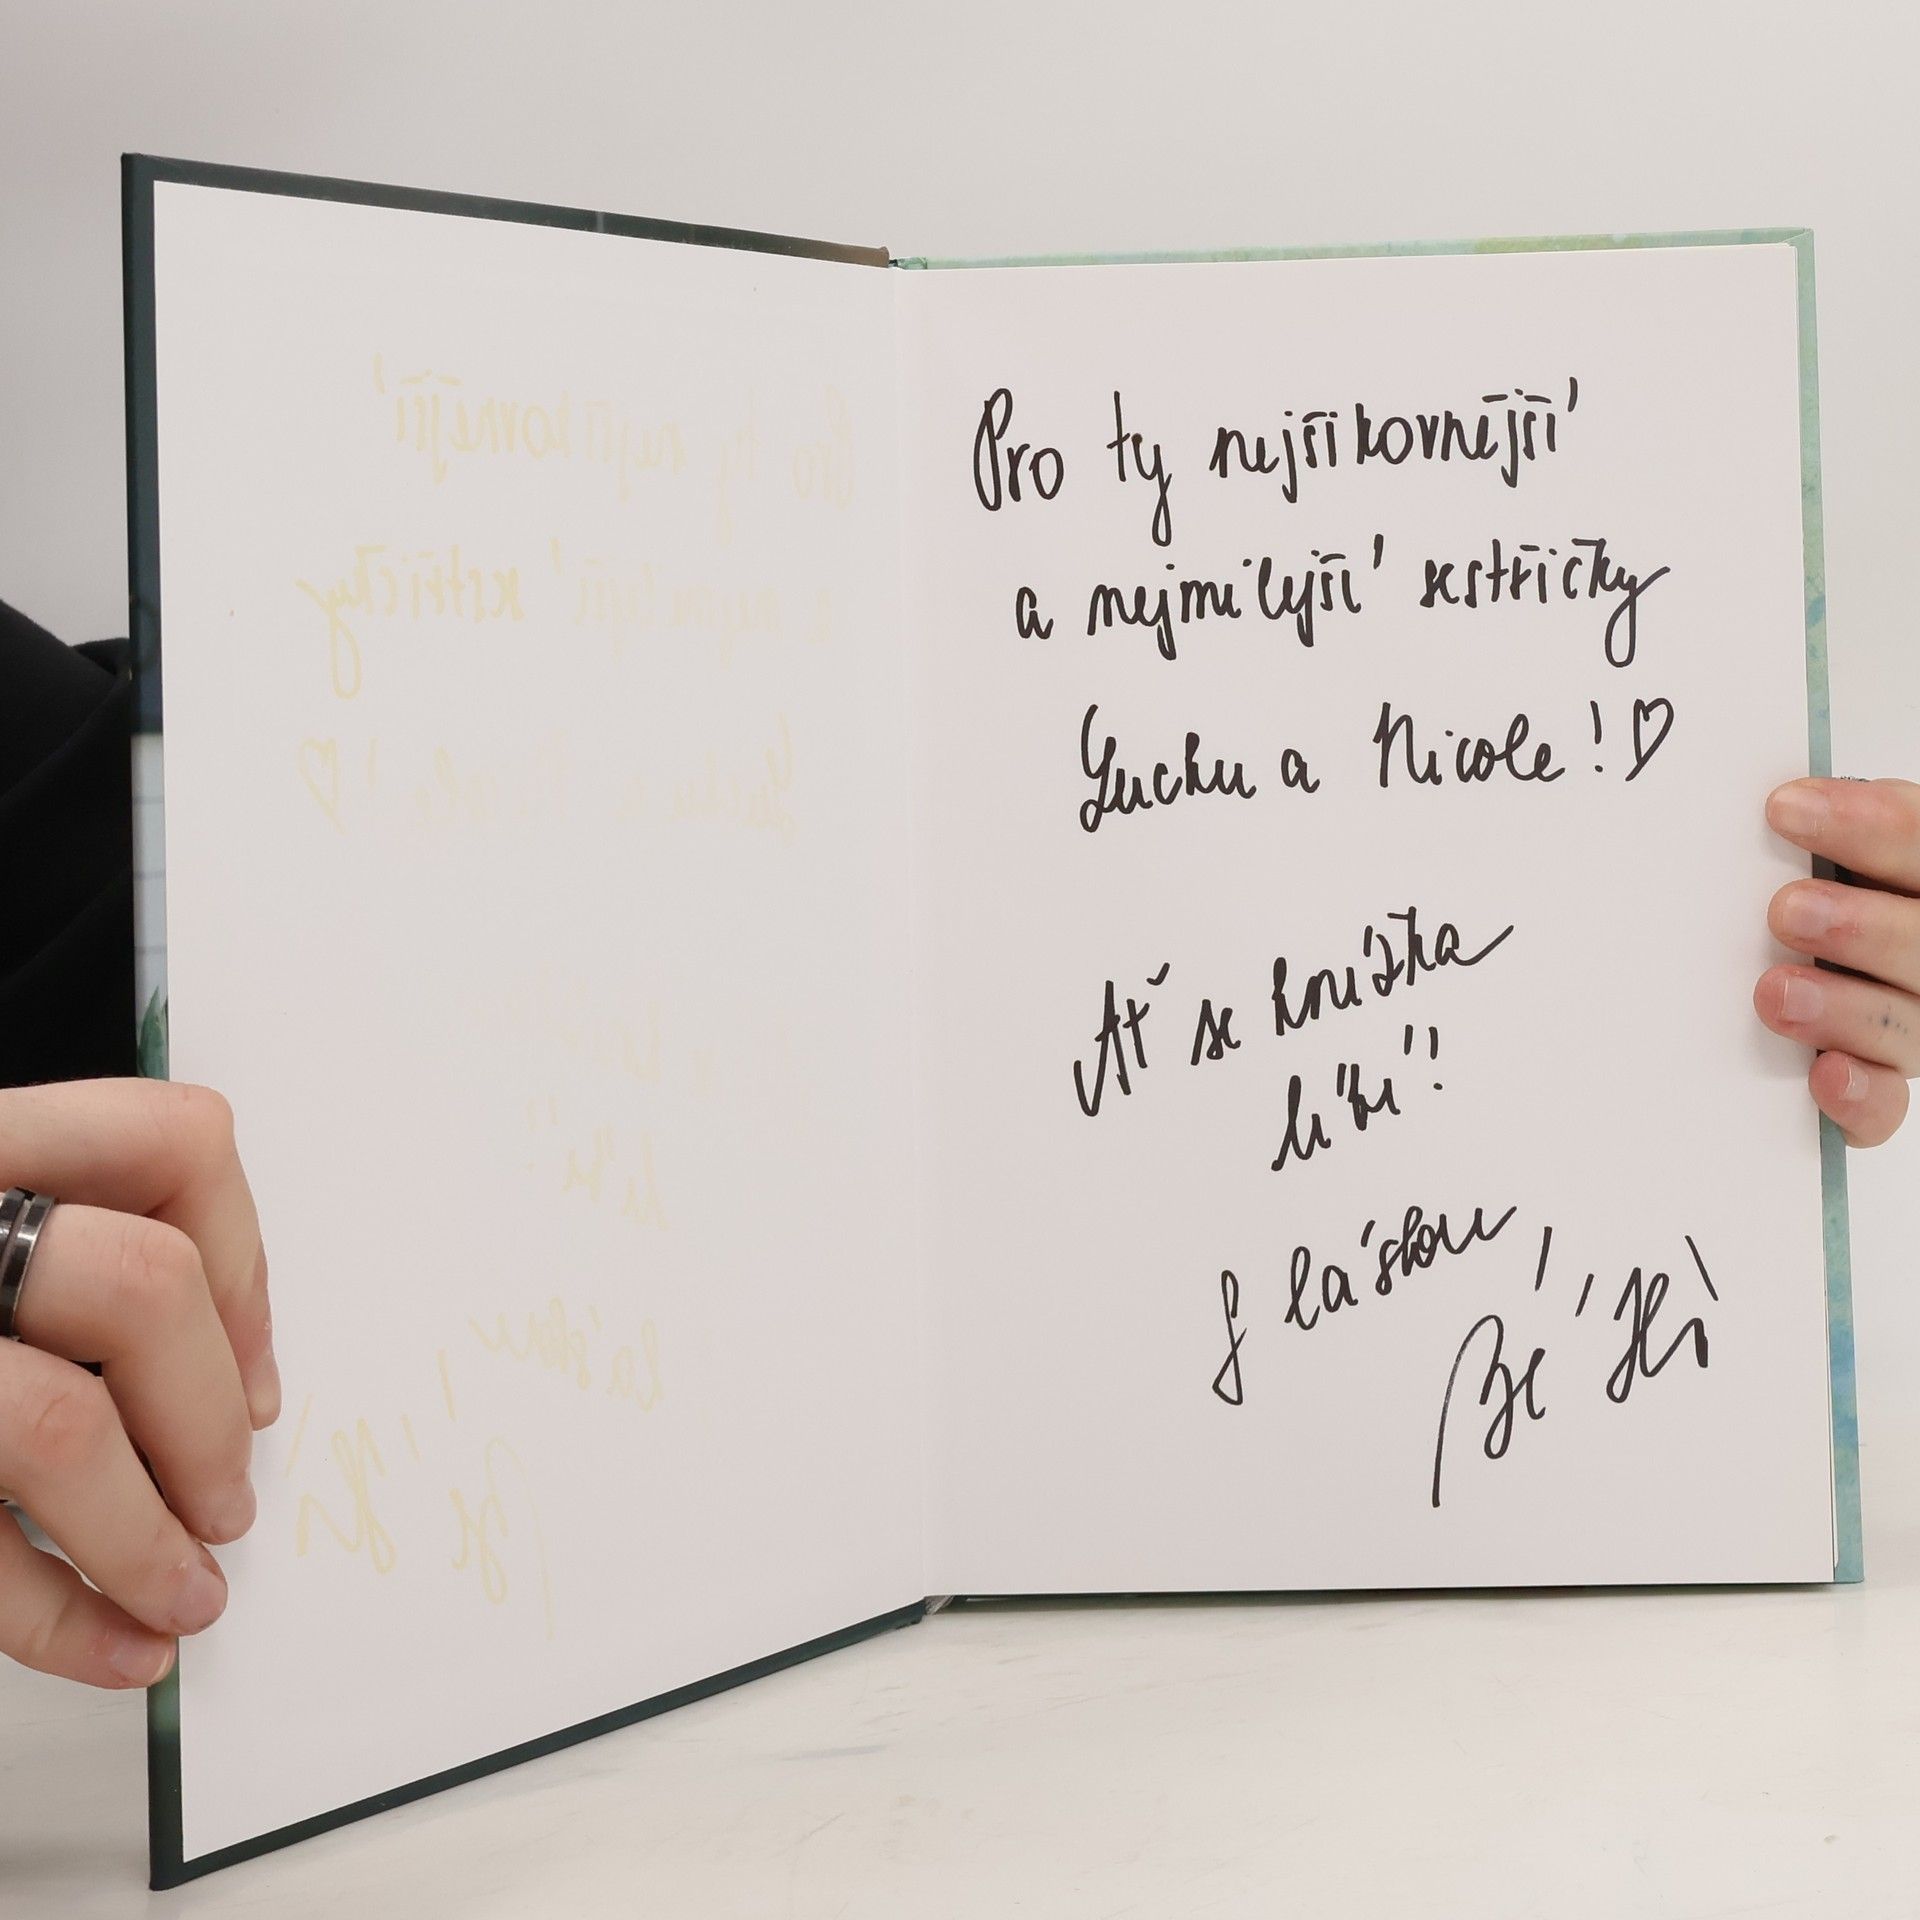 Pro ty nejšikovnější
a nejmilejší sestřičky
Lucku a Nicole! ♡
Ať se knížka
líbí!
S láskou,